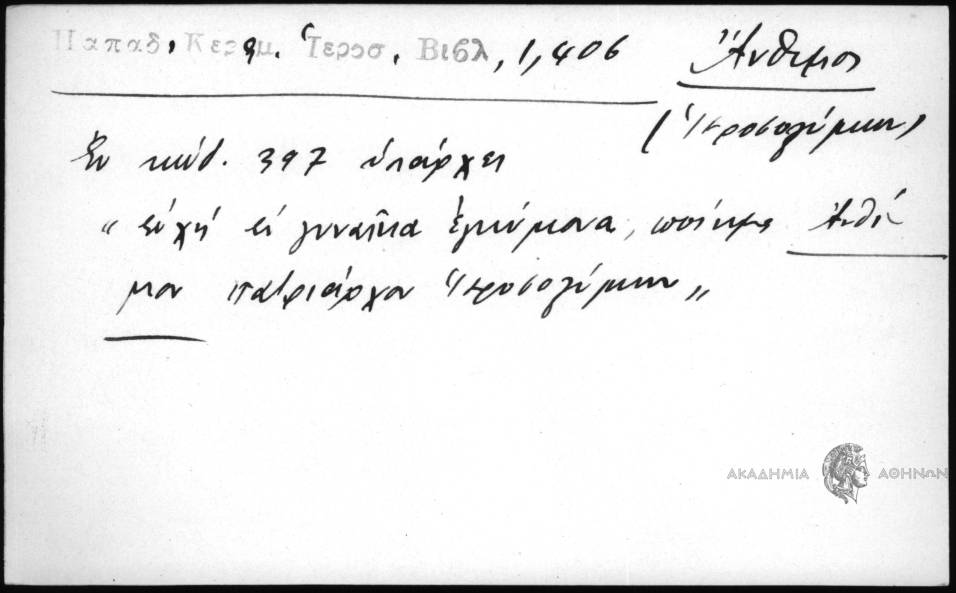 Παπαδ. Κεραμ. Ἱεροσ. Βιβλ, 1,406 Ἄνθιμος
(Ἱεροσολύμων)
Ἐν κώδ. 397 ὑπάρχει
"εὐχὴ εἰς γυναῖκα ἐγκύμονα, ποίημα Ἀνθί-
μου πατριάρχου Ἱεροσολύμων"
ΑΚΑΔΗΜΙΑ ΑΘΗΝΩΝ